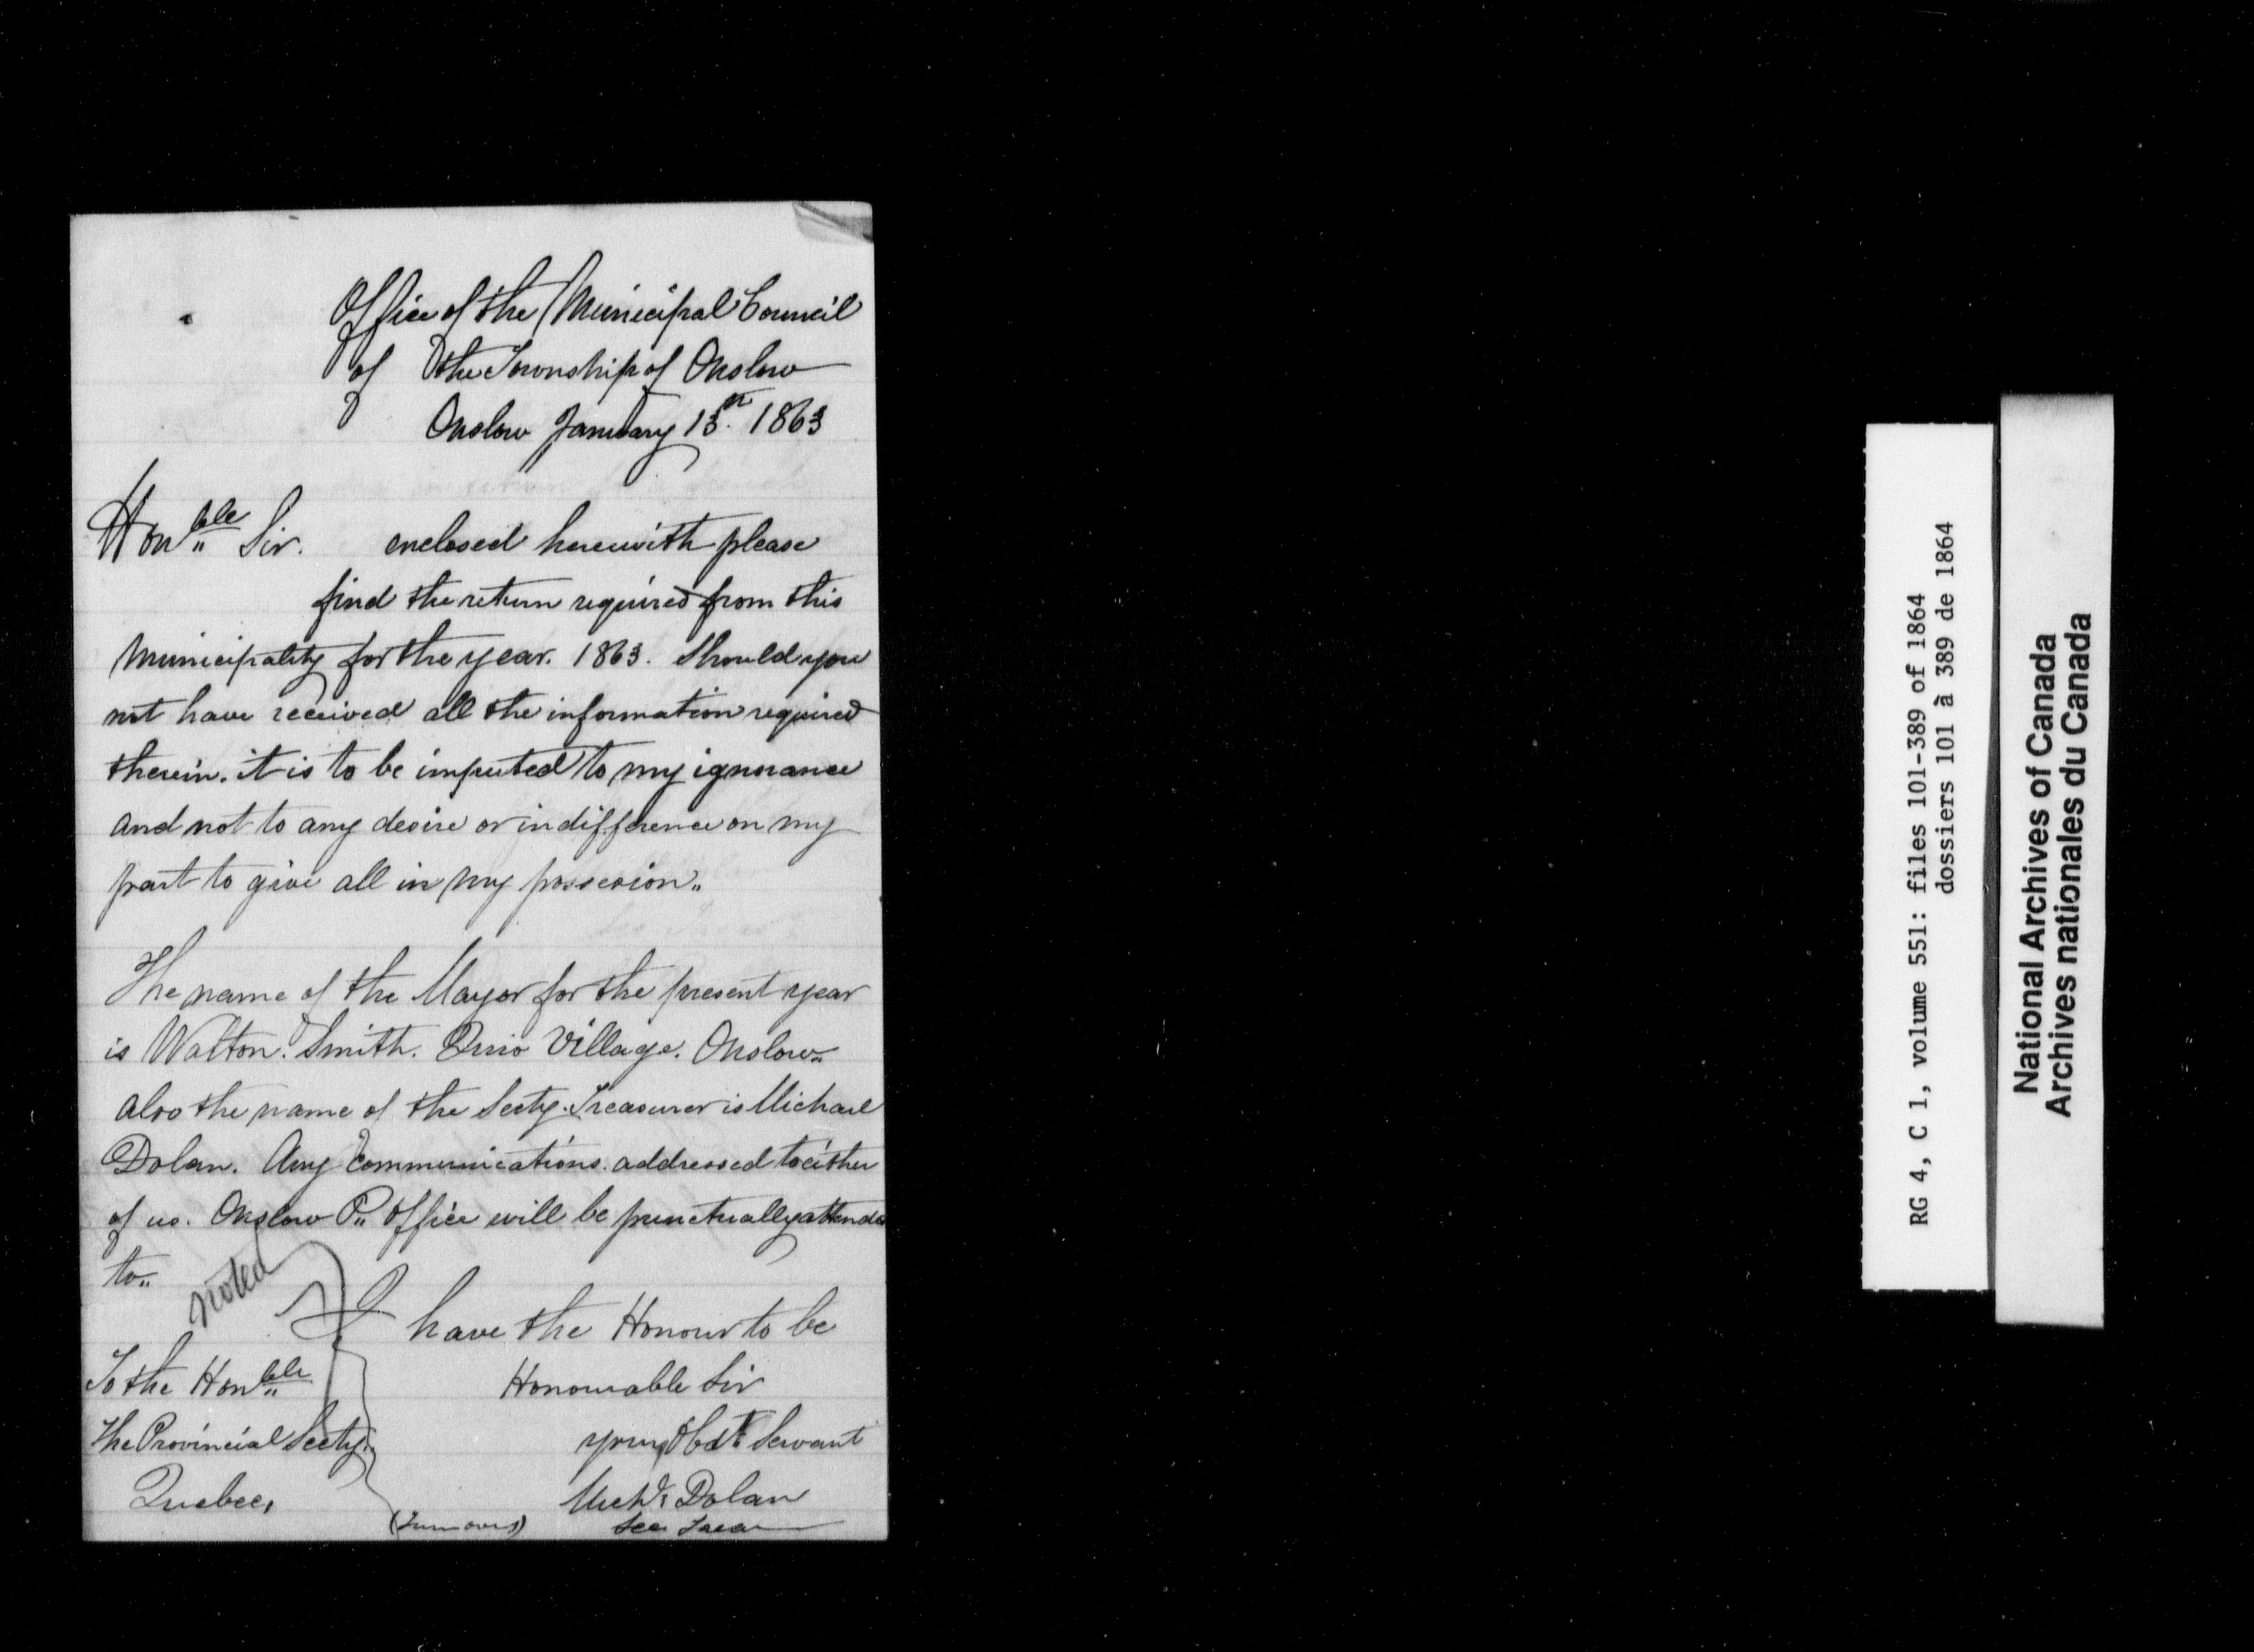 Office of the Municipal Council
of the Township of Onslow
Onslow January 13th 1863
Honble Sir. enclosed herewith please
find the return required from this
Municipality for the year. 1863. Should you
not have received all the information required
therein. it is to be imputed to my ignorance
and not to any desire or indifference on my
part to give all in my possession„
The name of the Mayor for the present year
is Walton. Smith. Quio Village. Onslow„
also the name of the Secty. Treasurer is Michael
Dolan. Any Communications. addressed to either
of us. Onslow P„ Office will be punctually attended
to„
noted
I have the Honour to be
To the Honble
Honourable Sir
The Provincial Secty.
your Obdt Servant
Quebec,
Michl. Dolan
(Turn over)
Sec. Treas
RG 4, C 1, volume 551: files 101-389 of 1864
dossiers 101 à 389 de 1864
National Archives of Canada
Archives nationales du Canada